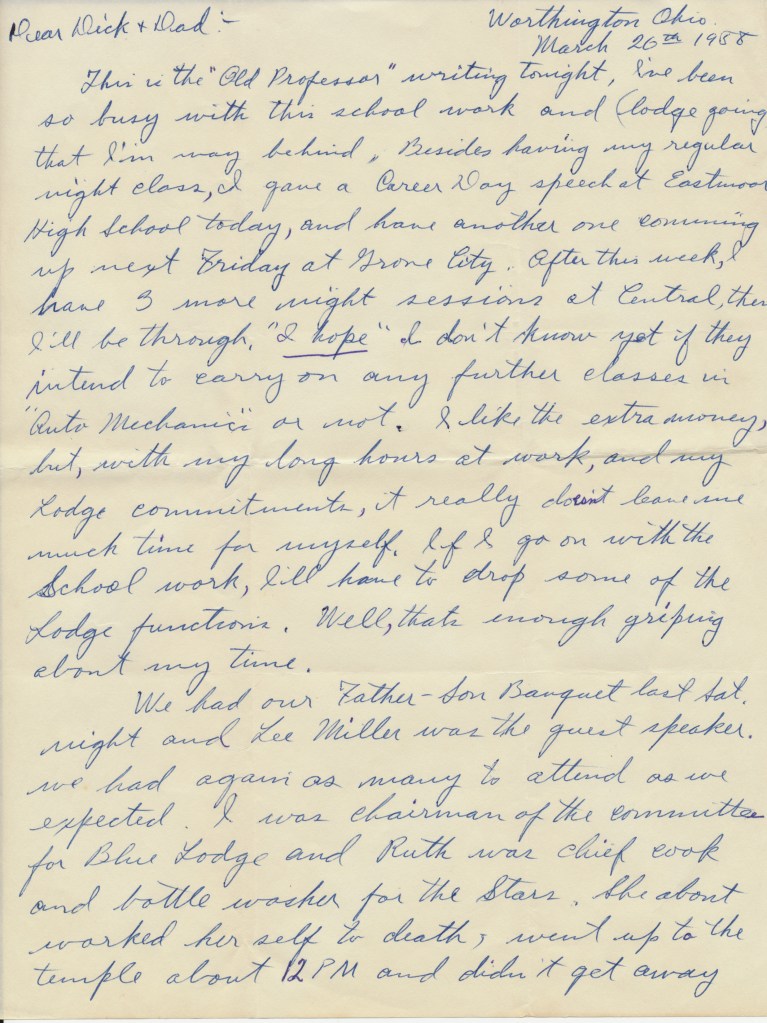 Dear Dick & Dad:-
Worthington Ohio.
March 26th 1958
This is the "Old Professor" writing tonight, I've been
so busy with this school work and (lodge going
that I'm way behind. Besides having my regular
night class, I gave a Career Day speech at Eastmoor
High School today, and have another one comming
up next Friday at Grove City. After this week, I
have 3 more night sessions at Central, then
I'll be through, "I hope" I don't know yet if they
intend to carry on any further classes in
"Auto Mechanics" or not. I like the extra money,
but, with my long hours at work, and my
Lodge commitments, it really doesn't leave me
much time for myself. If I go on with the
School work, I'll have to drop some of the
Lodge functions. Well, thats enough griping
about my time.
We had our Father-Son Banquet last Sat.
night and Lee Miller was the guest speaker.
we had again as many to attend as we
expected. I was chairman of the committee
for Blue Lodge and Ruth was chief cook
and bottle washer for the Stars. She about
worked her self to death, went up to the
temple about 12 PM and didn't get away